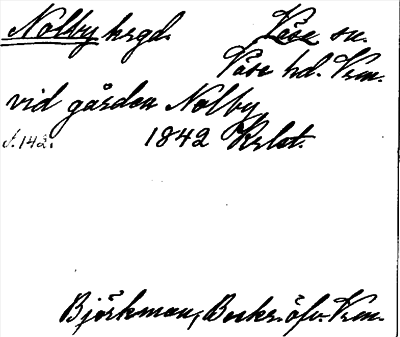 Nolby hrgd. Väse sn.
Väse hd. Vrm.
vid gården Nolby
s. 142. 1842 Krlst.
Björkman, Beskr. öfv. Vrm.